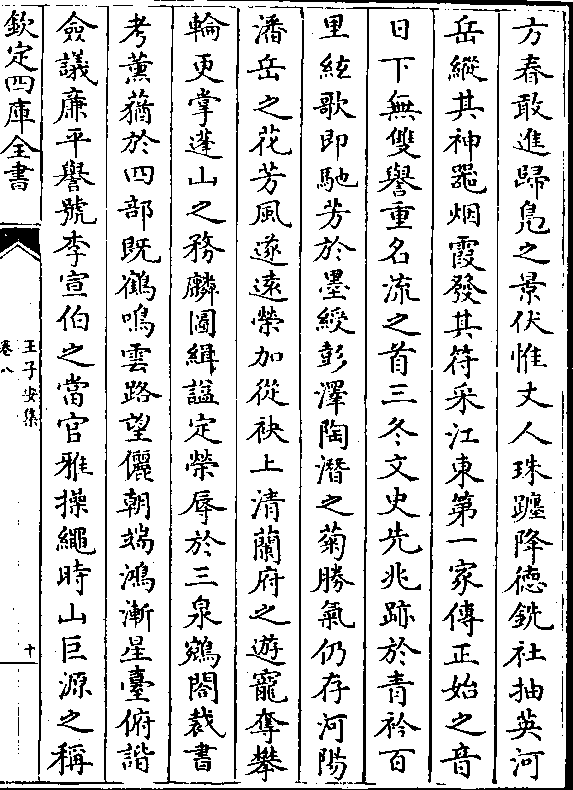 方春敢進歸鳧之景伏惟丈人珠躔降德銑社抽英河
岳縱其神器烟霞發其符采江東第一家傳正始之音
日下無雙譽重名流之首三冬文史先兆跡於青衿百
里絃歌即馳芳於墨綬彭澤陶潛之菊勝氣仍存河陽
潘岳之花芳風遂遠榮加從袂上清蘭府之遊寵奪攀
輪更掌蓬山之務麟圖緝謚定榮辱於三泉鷁閣裁書
考薰蕕於四部既鶴鳴雲路望儷朝端鴻漸星臺俯諧
僉議廉平譽號李宣伯之當官雅操繩時山巨源之稱
欽定四庫全書
王子安集
卷八
十